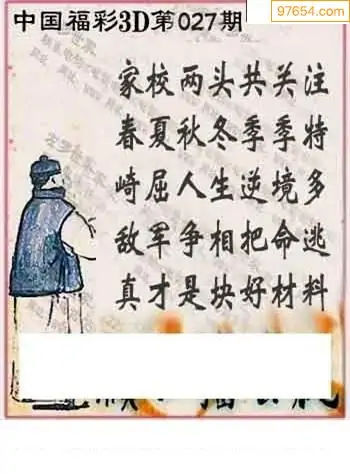 97654.com
中国福彩3D第027期
家校两头共关注
春夏秋冬季季特
崎屈人生逆境多
敌军争相把命逃
真才是块好材料